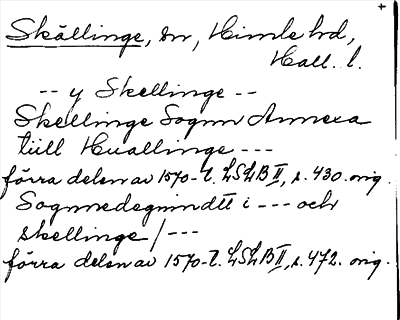 Skällinge, sn, Himle hd,
Hall. l.
-- y Skellinge --
Skellinge Sognn Annexa
tiill Huallinge ---
förra delen av 1570-t. LSLB II, s. 430. orig.
Sognnedegnndtt i --- och
skellinge / ---
förra delen av 1570-t. LSLB II, s. 472. orig.